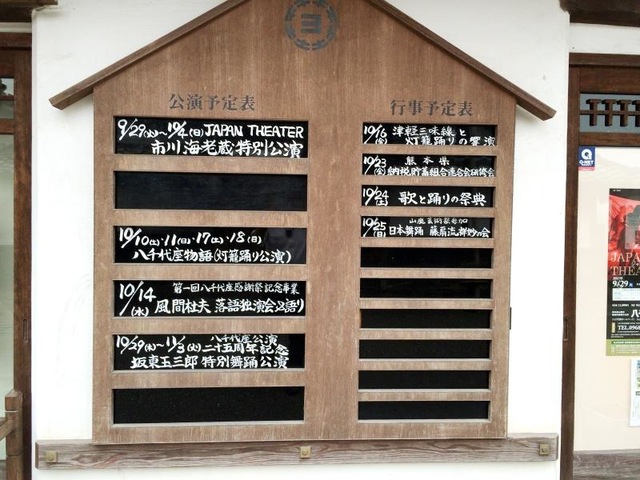 公演予定表
9/29(火)〜10/4(日) JAPAN THEATER
市川海老蔵 特別公演
10/10(土)・11(日)・17(土)・18(日)
八千代座物語(灯籠踊り公演)
10/14(水) 第一回八千代座感謝祭記念事業
風間杜夫 落語独演会
10/29(木)〜11/3(火) 八千代座公演
二十五周年記念
坂東玉三郎 特別舞踊公演
行事予定表
10/16(金) 津軽三味線と
灯籠踊りの響演
10/23(金) 熊本県
納税貯蓄組合連合会研修会
10/24(土) 歌と踊りの祭典
10/25(日) 山鹿芸術祭参加
日本舞踊 藤扇流
JAPAN
9/29
TEL.0968